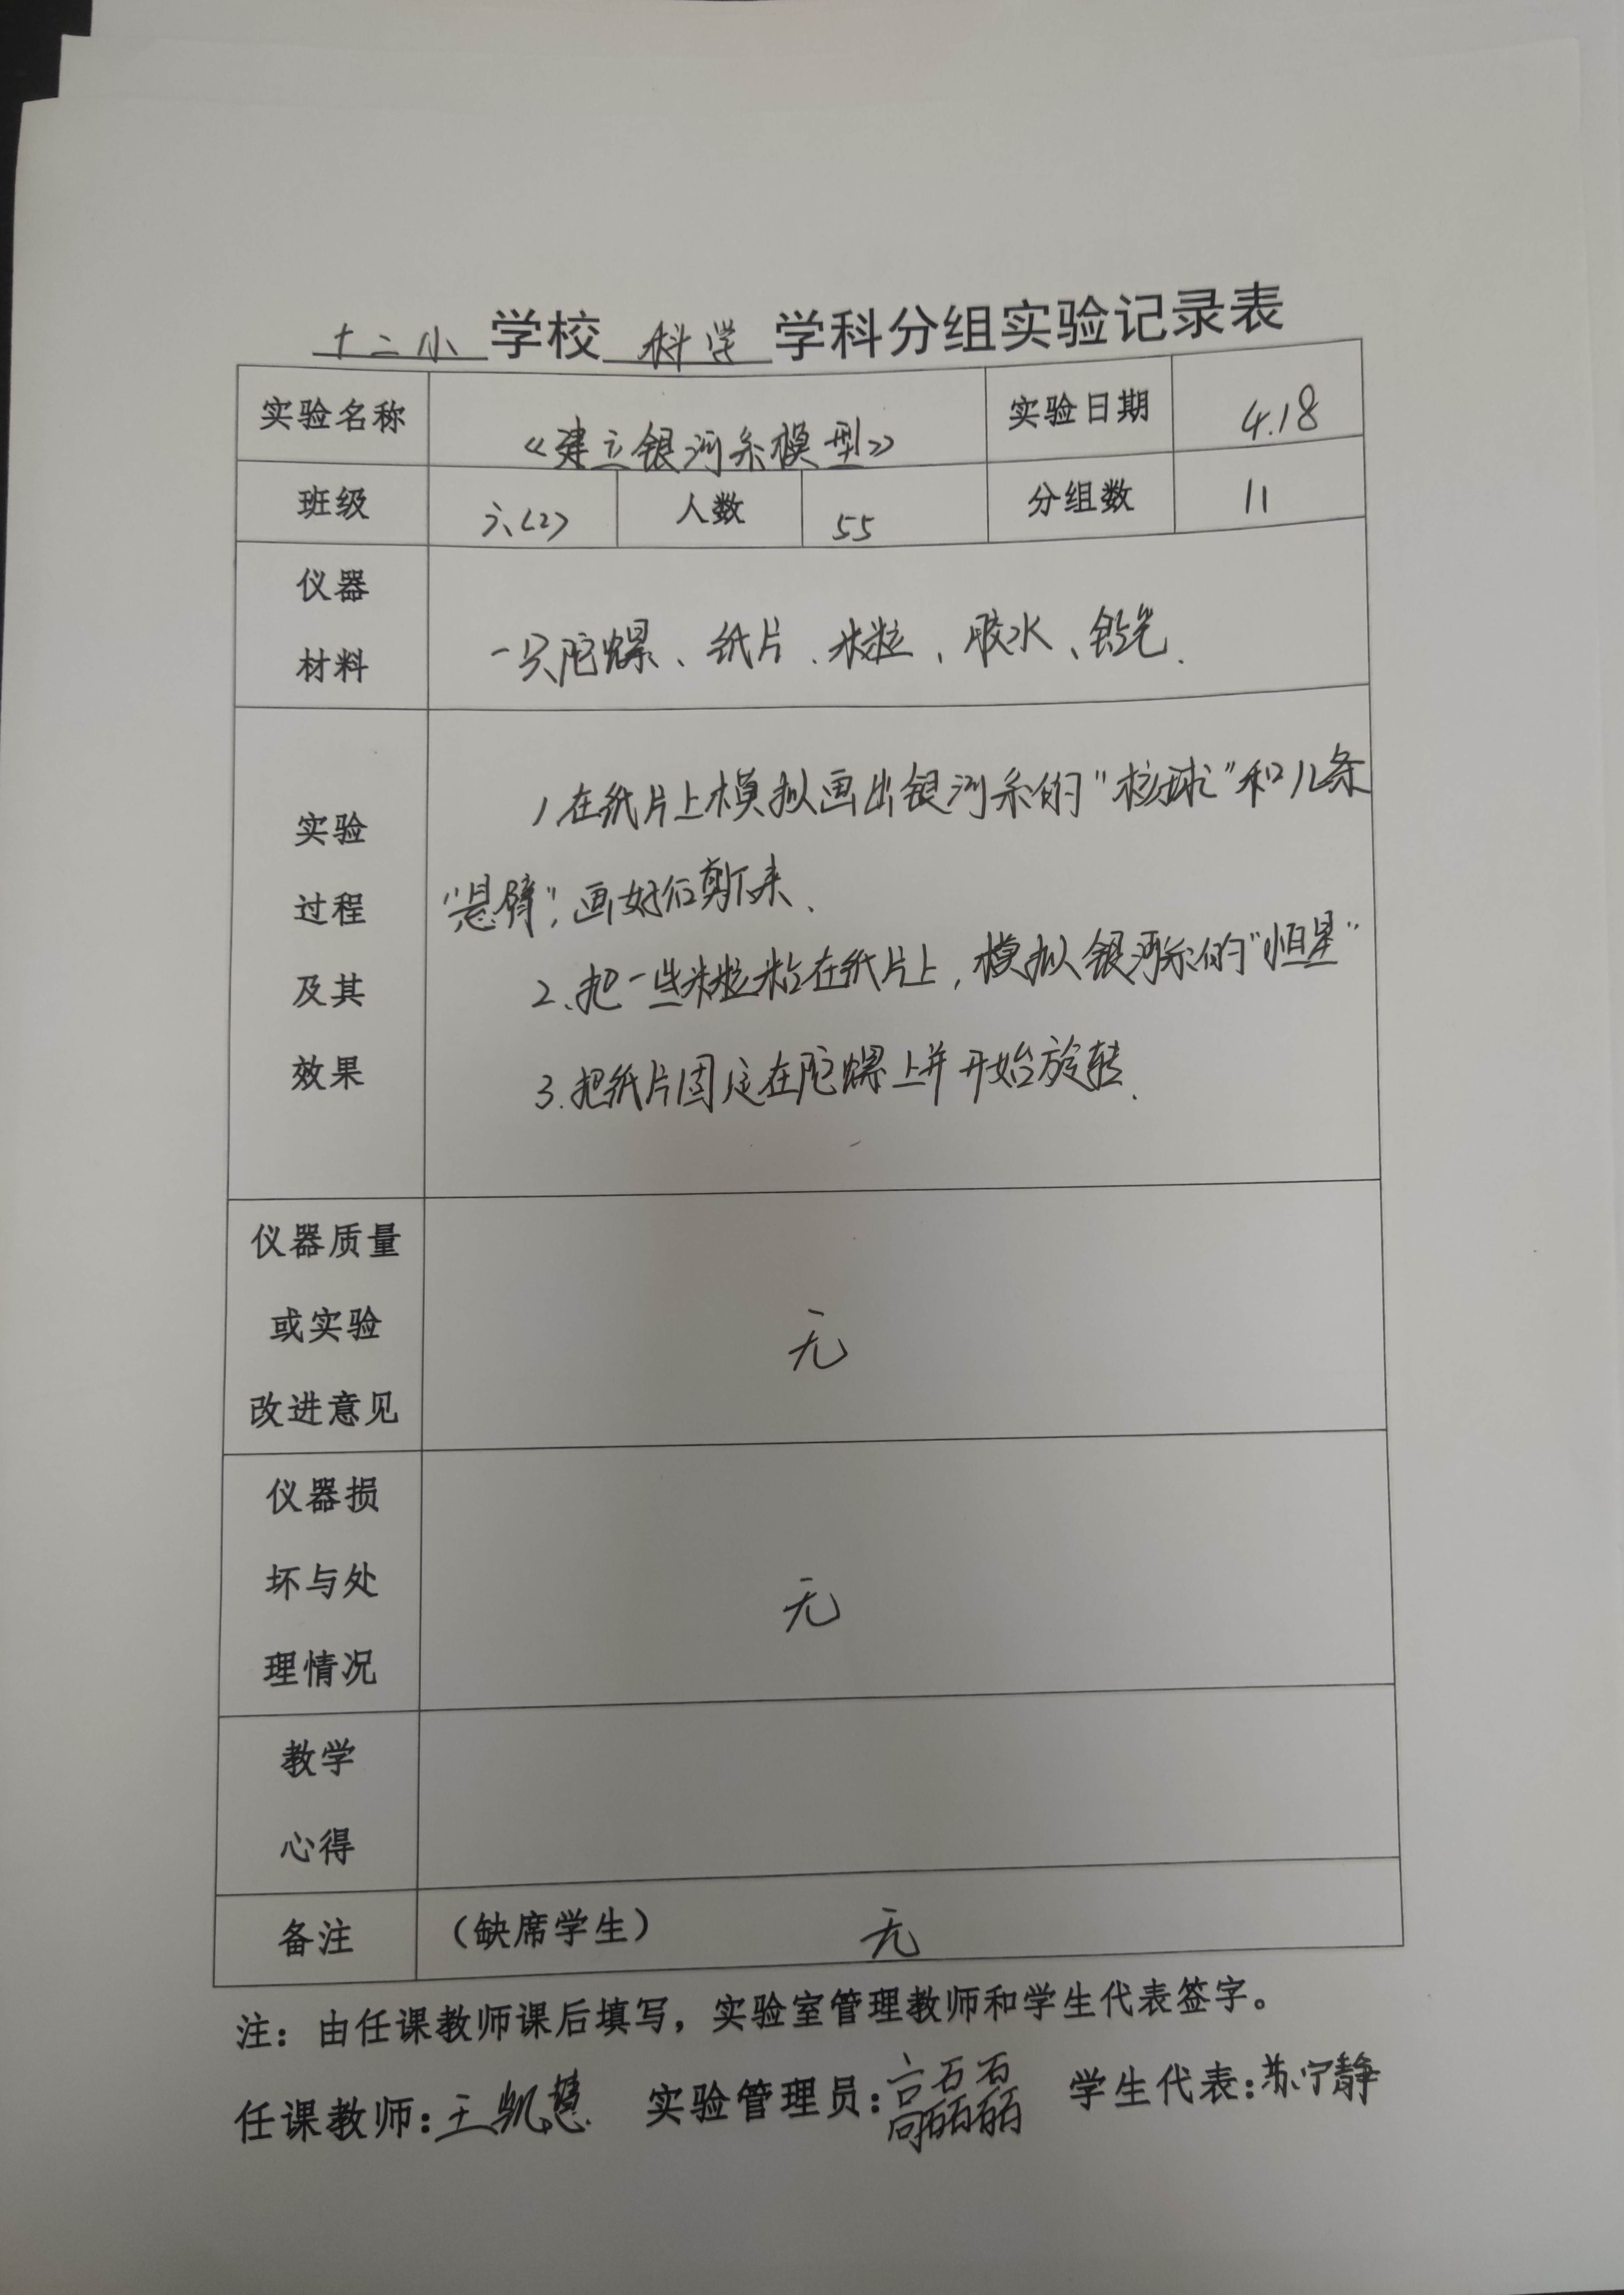 十二小 学校 科学 学科分组实验记录表
实验名称 《建立银河系模型》 实验日期 4.18
班级 六(2) 人数 55 分组数 11
仪器
材料
一只陀螺、纸片、米粒、胶水、铅笔.
实验
过程
及其
效果
1.在纸片上模拟画出银河系的“核球”和几条
“悬臂”,画好后剪下来、
2、把一些米粒粘在纸片上,模拟银河系的“恒星”
3.把纸片固定在陀螺上并开始旋转.
仪器质量
或实验
改进意见
无
仪器损
坏与处
理情况
无
教学
心得
备注 (缺席学生) 无
注：由任课教师课后填写，实验室管理教师和学生代表签字。
任课教师:王凯慧 实验管理员:高磊磊 学生代表:苏宁静